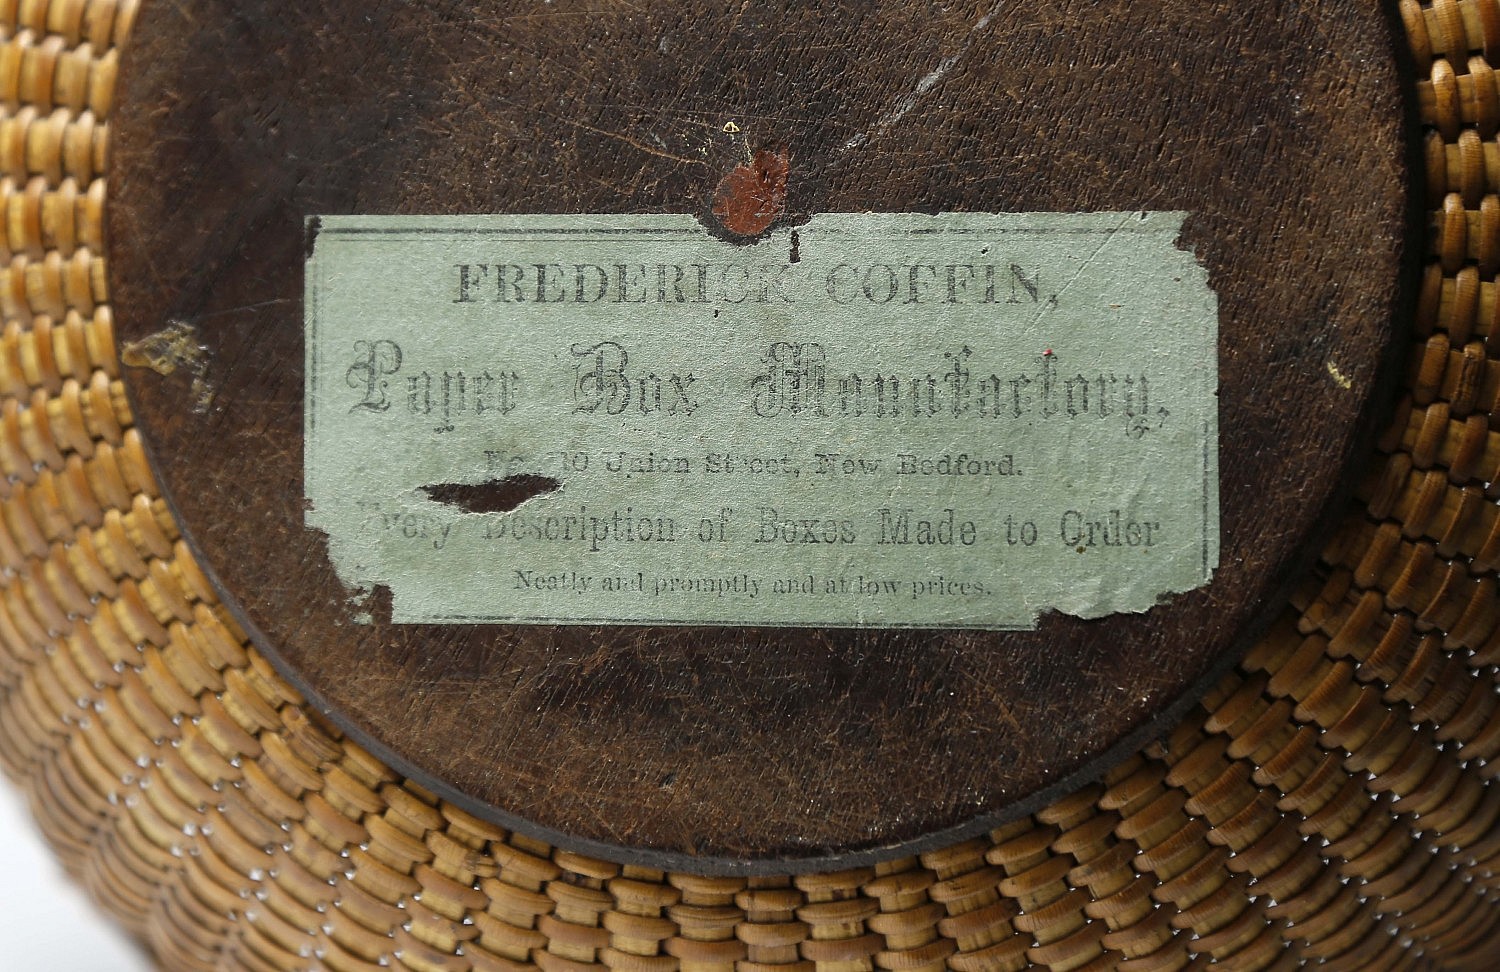 FREDERICK COFFIN,
Paper Box Manufactory,
No. 10 Union Street, New Bedford.
Every Description of Boxes Made to Order
Neatly and promptly and at low prices.